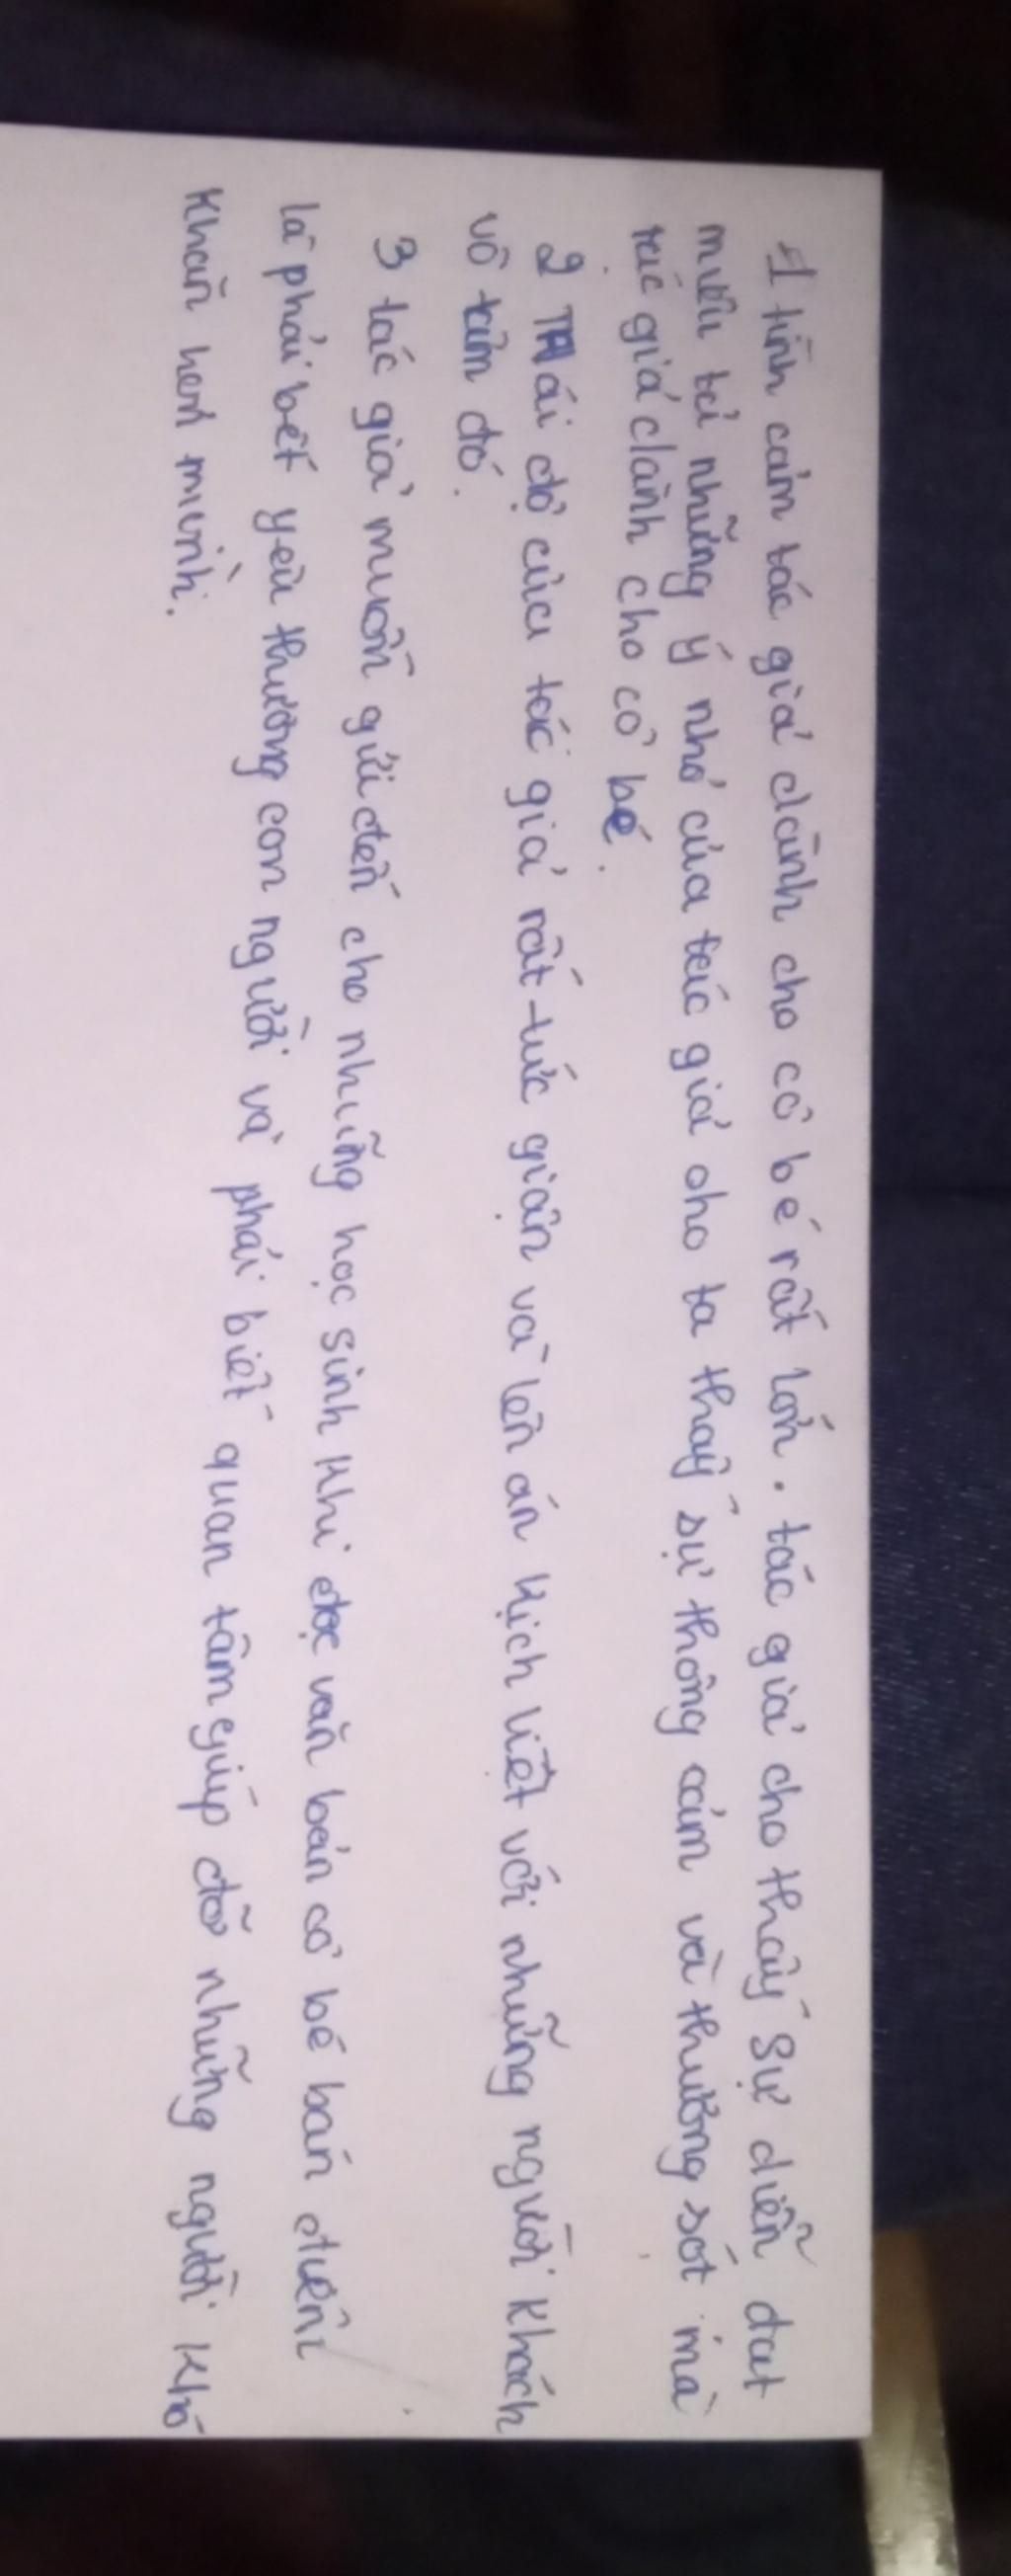 1 tình cảm tác giả dành cho cô bé rất lớn. tác giả cho thấy sự diễn đạt
miêu tả những ý nhỏ của tác giả cho ta thấy sự thông cảm và thương sót mà
tác giả dành cho cô bé.
2 Thái độ của tác giả rất tức giận và lên án kịch liệt với những người khách
vô tâm đó.
3 tác giả muốn gửi đến cho những học sinh khi đọc văn bản cô bé bán diêm
là phải bết yêu thương con người và phải biết quan tâm giúp đỡ những người khó
khăn hơn mình.